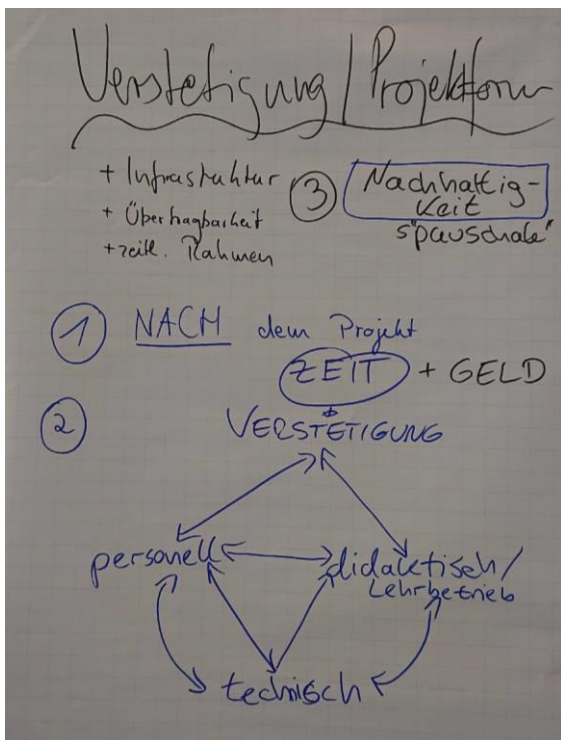 Verstetigung / Projektform
+ Infrastruktur
+ Übertragbarkeit
+ zeitl. Rahmen
③ Nachhaltig-
keit
s"pauschale"
① NACH dem Projekt
ZEIT + GELD
② VERSTETIGUNG
personell
didaktisch/
Lehrbetrieb
technisch